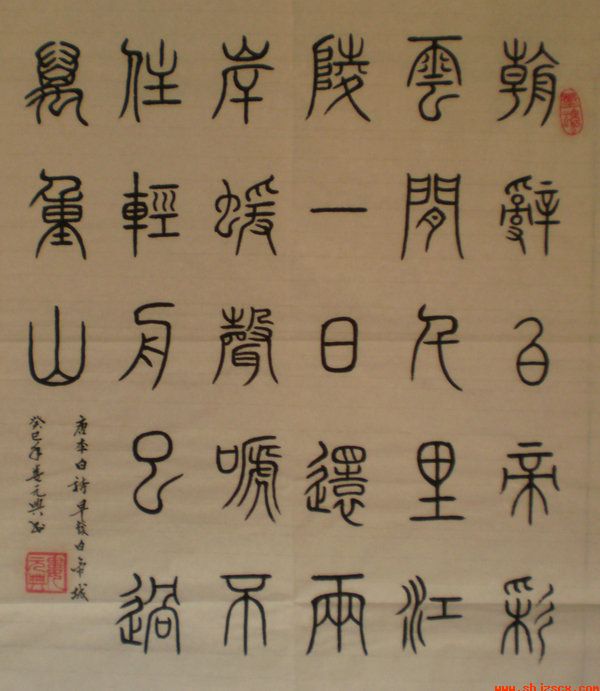 朝辭白帝彩
雲閒千里江
陵一日還兩
岸蝯聲嗁不
住輕舟已過
萬重山
唐李白詩早發白帝城
癸巳年姜元興書
www.shizscx.com